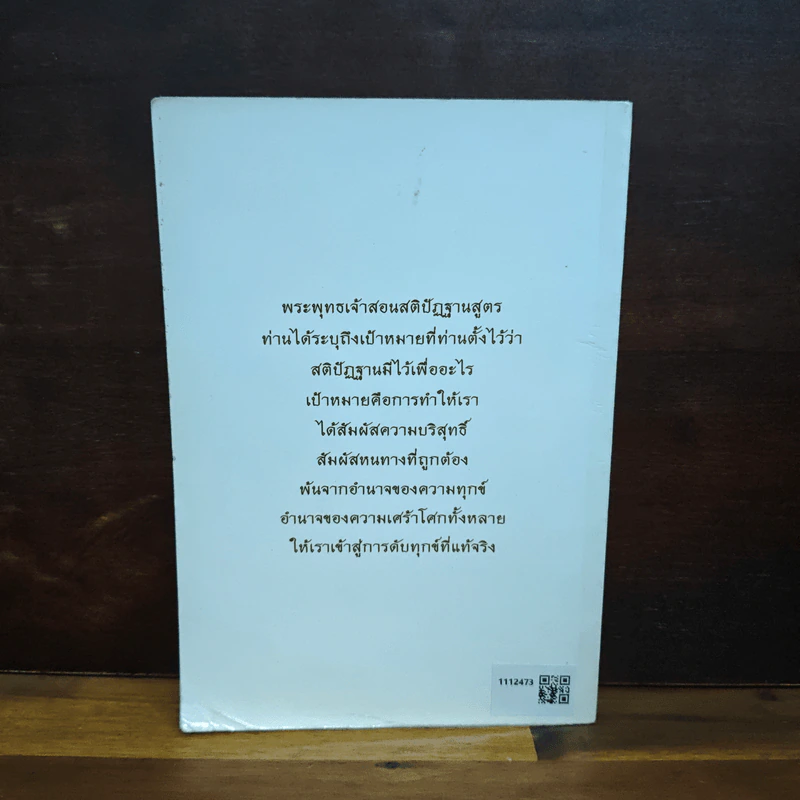 พระพุทธเจ้าสอนสติปัฏฐานสูตร
ท่านได้ระบุถึงเป้าหมายที่ท่านตั้งไว้ว่า
สติปัฏฐานมีไว้เพื่ออะไร
เป้าหมายคือการทำให้เรา
ได้สัมผัสความบริสุทธิ์
สัมผัสหนทางที่ถูกต้อง
พ้นจากอำนาจของความทุกข์
อำนาจของความเศร้าโศกทั้งหลาย
ให้เราเข้าสู่การดับทุกข์ที่แท้จริง
1112473